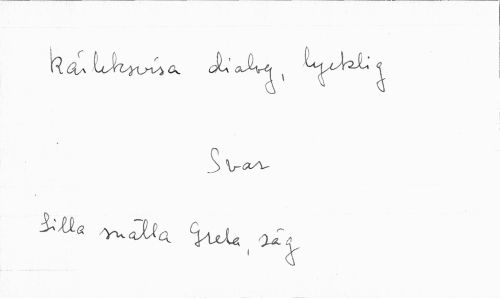 Kärleksvisa dialog, lycklig
Svar
Lilla snälla Greta, säg